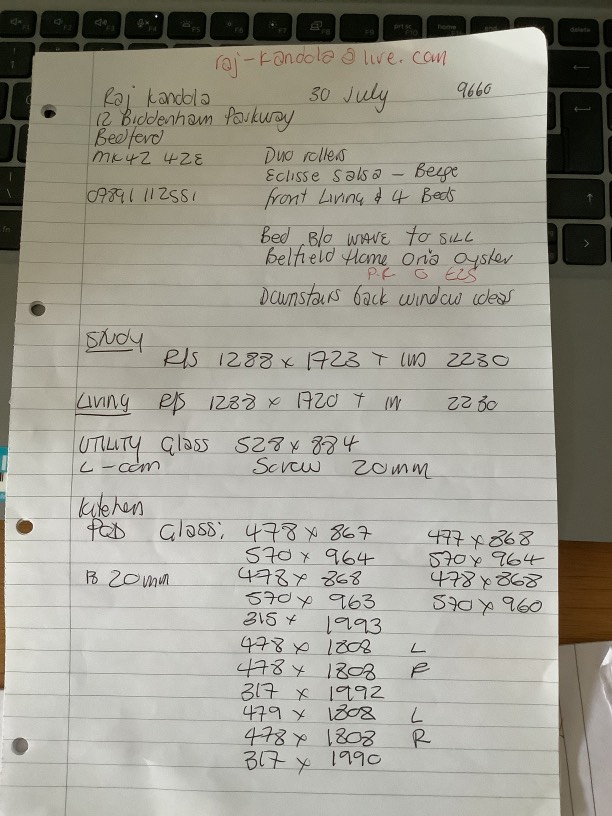 raj-kandola@live.com
Raj Kandola 30 July 9660
12 Biddenham Parkway
Bedford
MK42 4ZE Duo rollers
Eclisse Salsa - Beige
07891 112551 front Living & 4 Beds
Bed B/O WAVE to SILL
Belfield Home Oyster
P.F @ £25
Downstairs back window ideas
Study
R/S 1288 x 1723 + 2230
Living R/S 1288 x 1720 + IN 2230
UTILITY Glass 528 x 884
L-com Screw 20mm
Kitchen
Glass: 478 x 867 477 x 868
570 x 964 570 x 964
B 20mm 478 x 868 478 x 868
570 x 963 570 x 960
315 x 1993
478 x 1808 L
478 x 1808 R
317 x 1992
479 x 1808 L
478 x 1808 R
317 x 1990